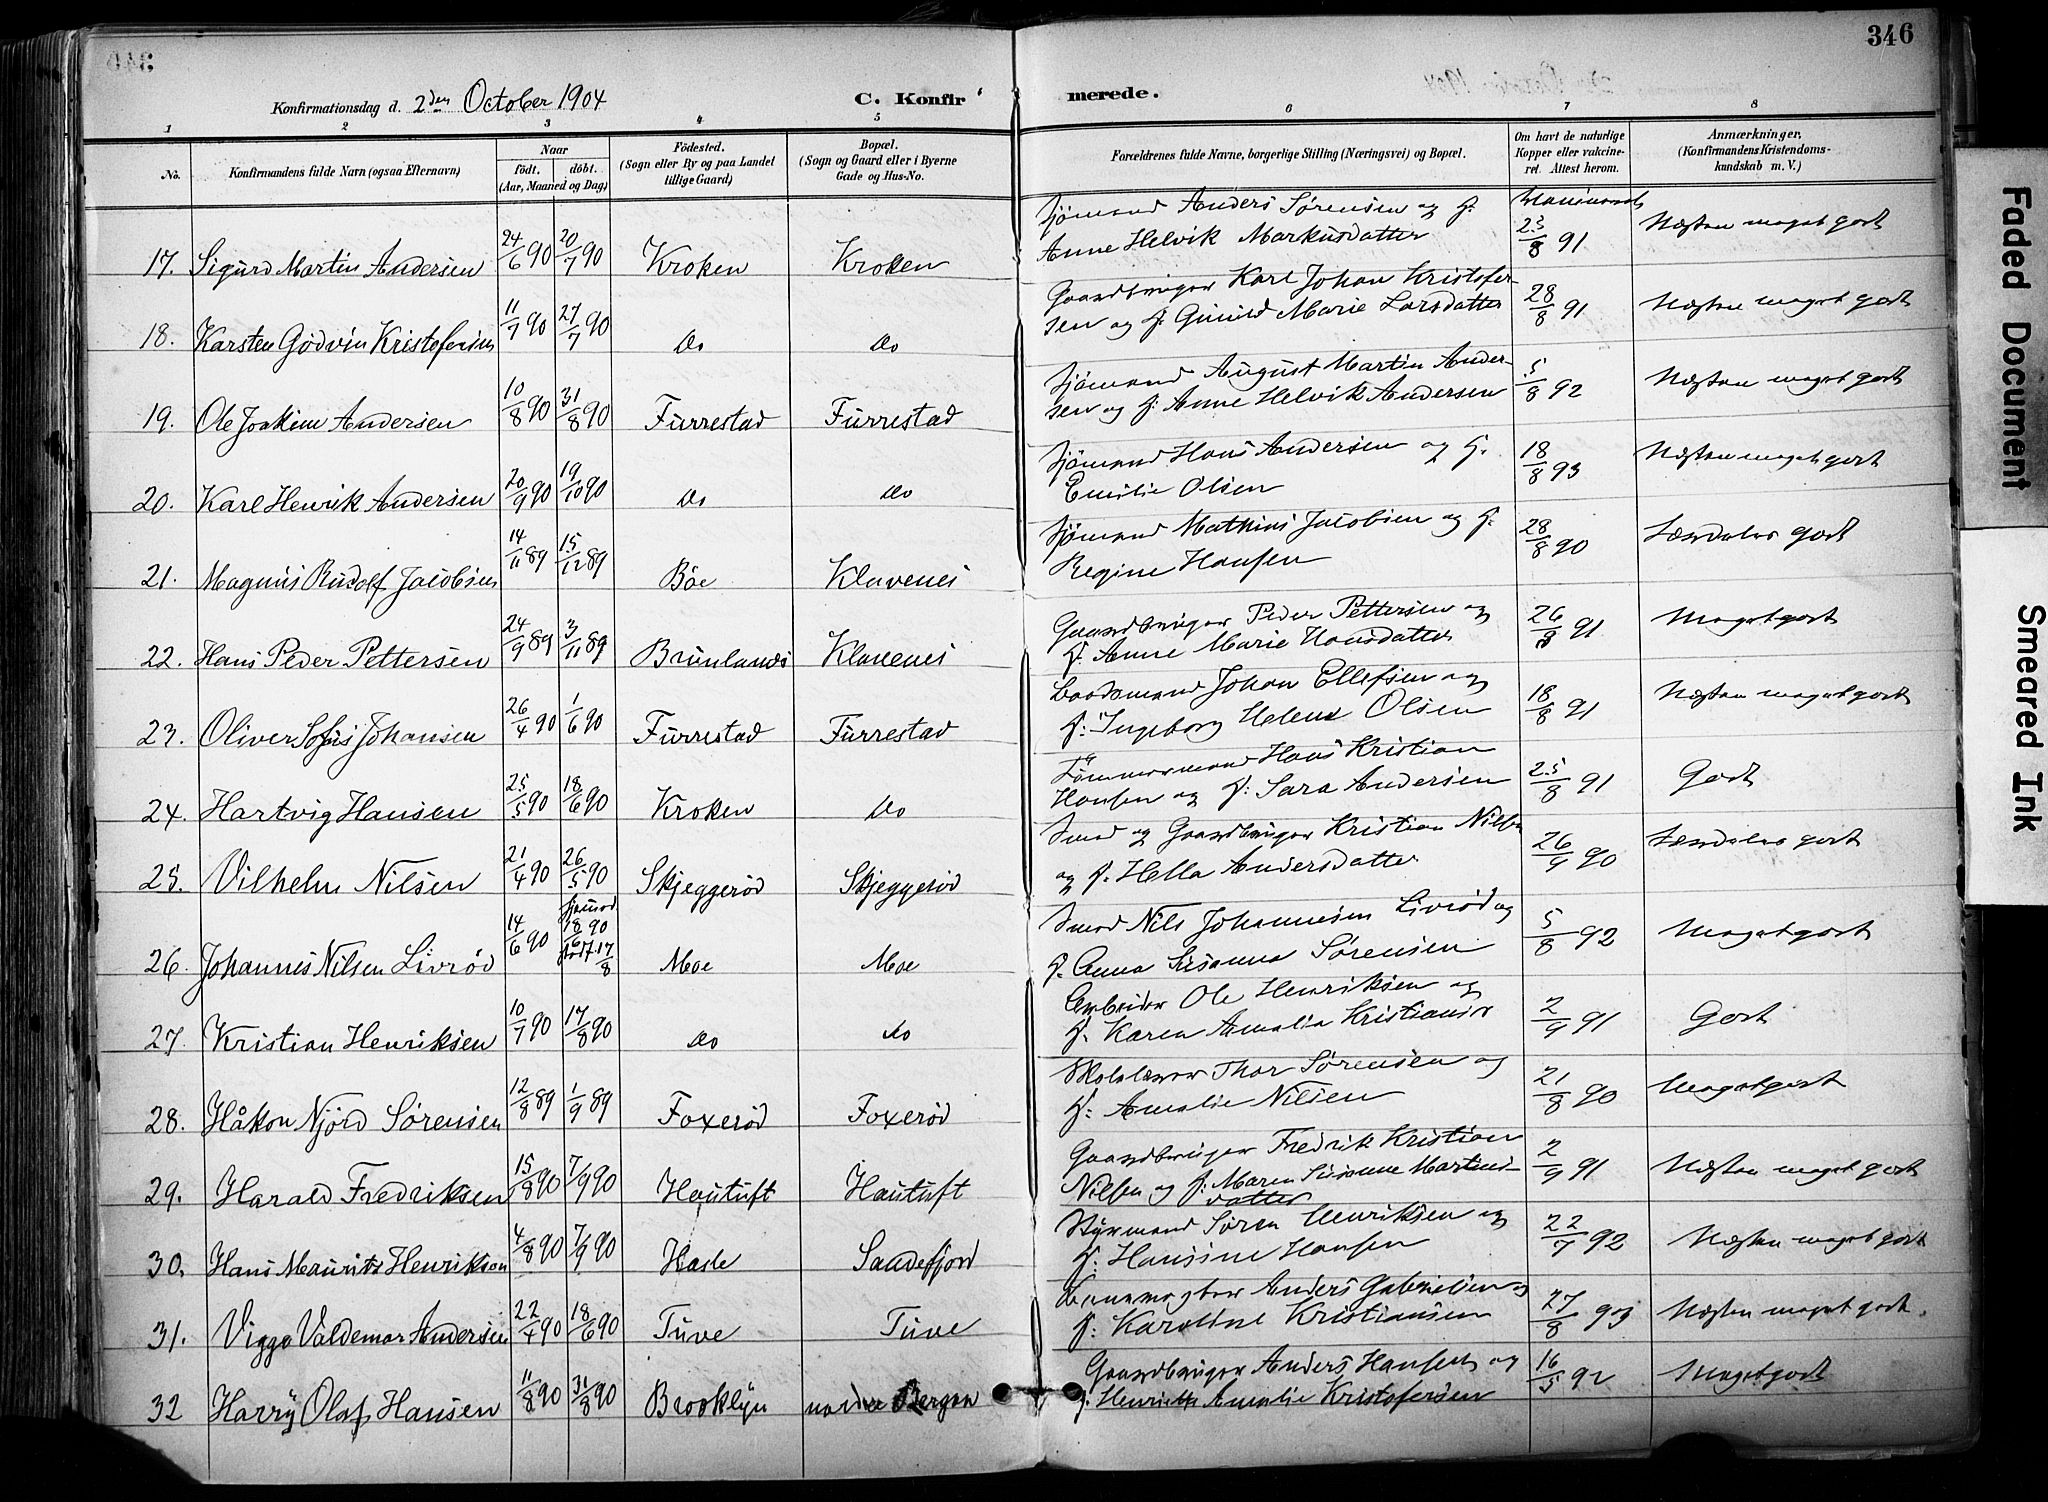 346
Konfirmationsdag d. 2den October 1904
C. Konfirmerede.
1 2 3 4 5 6 7 8
No.
Konfirmandens fulde Navn (ogsaa Efternavn)
Naar
født. døbt.
(Aar, Maaned og Dag)
Fødested.
(Sogn eller By og paa Landet
tillige Gaard)
Bopæl.
(Sogn og Gaard eller i Byerne
Gade og Hus-No.
Forældrenes fulde Navne, borgerlige Stilling (Næringsvei) og Bopæl.
Om havt de naturlige
Kopper eller vakcine-
ret. Attest herom.
Anmærkninger.
(Konfirmandens Kristendoms-
kundskab m. V.)
17. Sigurd Martin Andersen 24/6 90 20/7 90 Kroken Kroken Sjømand Anders Sørensen og h.
Anne Helvik Markusdatter 25/8 91 Næsten meget godt
18. Karsten Gødvin Kristofersen 11/7 90 27/7 90 Do Do Gaardbruger Karl Johan Kristofer-
sen og h. Gunild Marie Larsdatter 28/8 91 Næsten meget godt
19. Ole Joakim Andersen 10/8 90 31/8 90 Furrestad Furrestad Sjømand August Martin Ander-
sen og h. Anne Helvik Andersen 5/8 92 Næsten meget godt
20. Karl Henrik Andersen 20/9 90 19/10 90 Do Do Sjømand Hans Andersen og h.
Emilie Olsen 18/8 93 Næsten meget godt
21. Magnus Rudolf Jacobsen 14/11 89 15/12 89 Bøe Klavenes Sjømand Mathias Jacobsen og h.
Regine Hansen 28/8 90 Særdeles godt
22. Hans Peder Pettersen 24/9 89 3/11 89 Brunlanes Klavenes Gaardbruger Peder Pettersen og
h. Anne Marie Hansdatter 26/8 91 Meget godt
23. Oliver Sofus Johansen 26/4 90 1/6 90 Furrestad Furrestad Baadsmand Johan Ellefsen og
h. Ingeborg Helene Olsen 18/8 91 Næsten meget godt
24. Hartvig Hansen 25/5 90 18/6 90 Kroken Do Tømmermand Hans Kristian
Hansen og h. Sara Andersen 25/8 91 Godt
25. Vilhelm Nilsen 21/4 90 26/5 90 Skjeggerød Skjeggerød Smed og Gaardbruger Kristian Nilsen
og h. Hella Andersdatter 26/9 90 Særdeles godt
26. Johannes Nilsen Livrød 14/6 90 hjemmed 18/6 90 17/8 Moe Moe Smed Nils Johannesen Livrød og
h. Anna Susanna Sørensen 5/8 92 Meget godt
27. Kristian Henriksen 10/7 90 17/8 90 Do Do Arbeider Ole Henriksen og
h. Karen Amalia 2/9 91 Godt
28. Håkon Njörd Sørensen 12/8 89 1/9 89 Foxerød Foxerød Skolelærer Thor Sørensen og
h. Amalie Nilsen 21/8 90 Meget godt
29. Harald Fredriksen 15/8 90 7/9 90 Hautuft Hautuft Gaardbruger Fredrik Kristian
Nilsen og h. Maren Susanne Martins-
datter 2/9 91 Næsten meget godt
30. Hans Maurits Henriksen 4/8 90 7/9 90 Hasle Sandefjord Styrmand Søren Henriksen og
h. Hansine Hansen 22/7 92 Næsten meget godt
31. Viggo Valdemar Andersen 22/4 90 18/6 90 Tuve Tuve Anders Gabrielsen og
h. Karoline Kristiansen 27/8 93 Næsten meget godt.
32 Harry Olaf Hansen 11/8 90 31/8 90 Brooklyn nordre Bergan Gaardbruger Anders Hansen og
h. Henriette Amalie Kristofersen 16/5 92 Meget godt
Faded Document
Smeared Ink